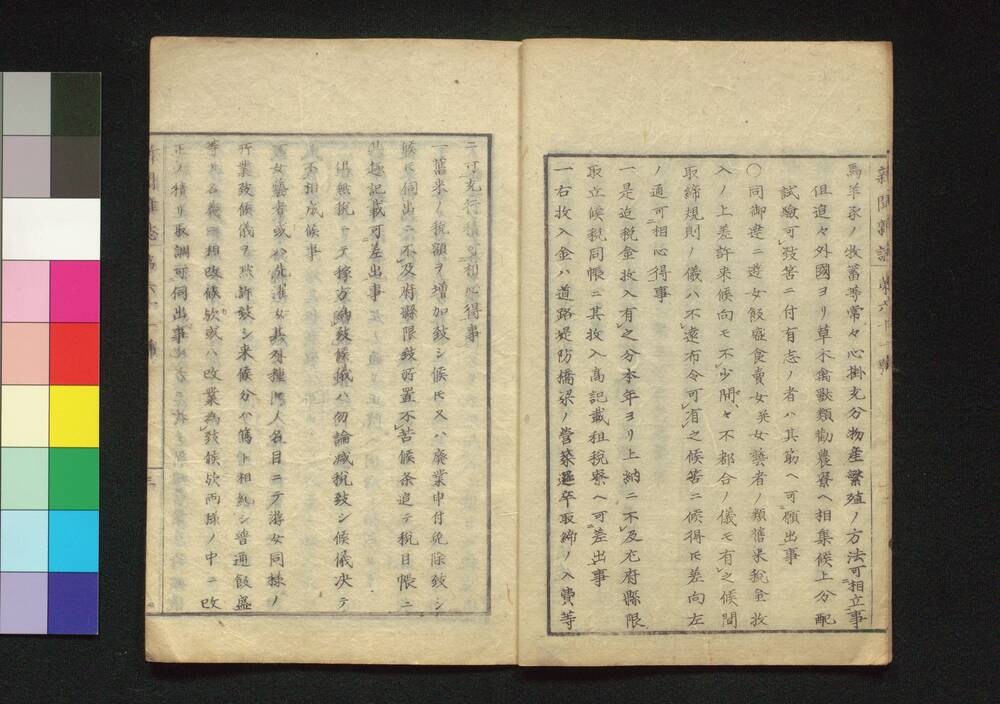 新聞雑誌 第六十一號
馬羊豕ノ牧畜等常々心掛尤分物産繁殖ノ方法可相立事
但追々外國ヨリ草木禽獣類勸農寮ヘ相集候上分配
試驗可致筈ニ付有志ノ者ハ其筋ヘ可願出事
〇同御達ニ遊女飯盛食賣女藝者ノ類舊来税金收
入ノ上差許来候向モ不少間々不都合ノ儀モ有之候間
取締規則ノ儀ハ不遠布令可有之候筈ニ候得𪜈差向左
ノ通可相心得事
一是迄税金收入有之分本年ヨリ上納ニ不及尤府縣限
取立候税同帳ニ其收入高記載租税寮ヘ可差出事
一右收入金ハ道路堤防橋梁ノ營築邏卒取締ノ入費等
ニ可充行積可相心得事
一舊来ノ税額ヲ増加致シ候𪜈又ハ廃業申付免除致シ
候𪜈伺出ニ不及府縣限致所置不苦候条追テ税目帳ニ
此趣記載可差出事
但無税ニテ稼方為致候儀ハ勿論減税致シ候儀決テ
不相成候事
女藝者或ハ人名目ニテ遊女同様ノ
所業致候儀ヲ黙許致シ来候分ハ篤ト相糺シ普通飯盛
等ト相改候歟或ハ改業為致候歟両様ノ中ニ改
正ノ積リ取調可伺出事